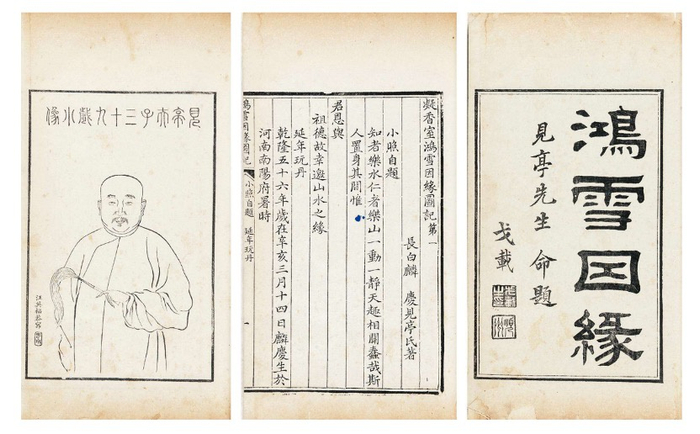 鴻雪囙緣
見亭先生 命題
戈載
凝香室鴻雪因緣圖記第一
長白麟 慶見亭氏著
小照自題
知者樂水仁者樂山一動一靜天趣相關蠢哉斯
人置身其間惟
君恩與
祖德故幸邀山水之緣
延年玩丹
乾隆五十六年歲在辛亥三月十四日麟慶生於
河南南陽府署時
鴻雪因緣圖記 小照自題 延年玩丹
見亭夫子三十九歲小像
汪英福恭寫